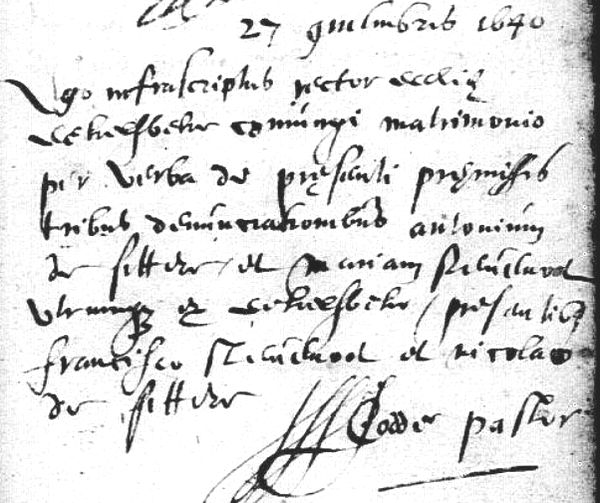 27 9iulmbris 1640
Ego infrascriptus rector ecclię
eekelsbeke coniunxi matrimonio
per verba de pręsenti pręmissis
tribus denunciationibus antonium
de sittere et Mariam
utrumq ex eekelsbeke presentibus
francisco et nicolao
de sittere
Codde pastor